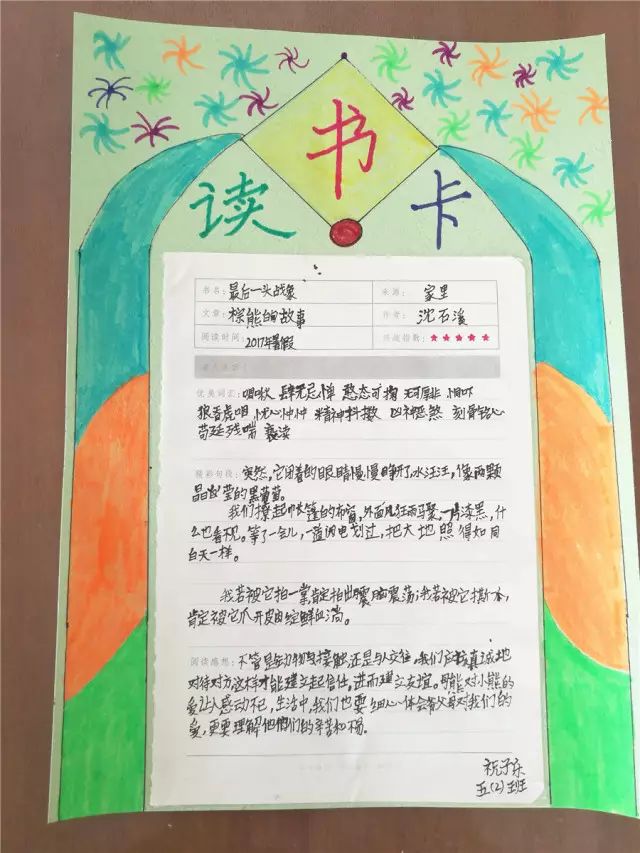 书
读 卡
书名：最后一头战象 来源：家里
文章：棕熊的故事 作者：沈石溪
阅读时间：2017年暑假 挑战指数：★★★★★
优美词汇：咀嚼 肆无忌惮 憨态可掬 恫吓
狼吞虎咽 忧心忡忡 精神抖擞 凶神恶煞 刻骨铭心
苟延残喘 亵渎
精彩句段：突然，它闭着的眼睛慢慢睁开了，水汪汪，像两颗
晶莹的黑葡萄。
我们撩起帐篷的布窗，外面风狂雨骤，一片漆黑，什
么也看不见。等了一会儿，一道闪电划过，把大地照得如同
白天一样。
我若被它拍一掌肯定拍出脑震荡；我若被它撕一下，
肯定被它爪开皮肉绽鲜血淌。
阅读感想：不管是与动物接触还是与人交往，我们应该真诚地
对待对方这样才能建立起信任，进而建立友谊。母熊对小熊的
爱让人感动不已，生活中，我们也要细心体会爷父母对我们的
爱，更要理解他们的辛苦和
祝子东
五（2）班